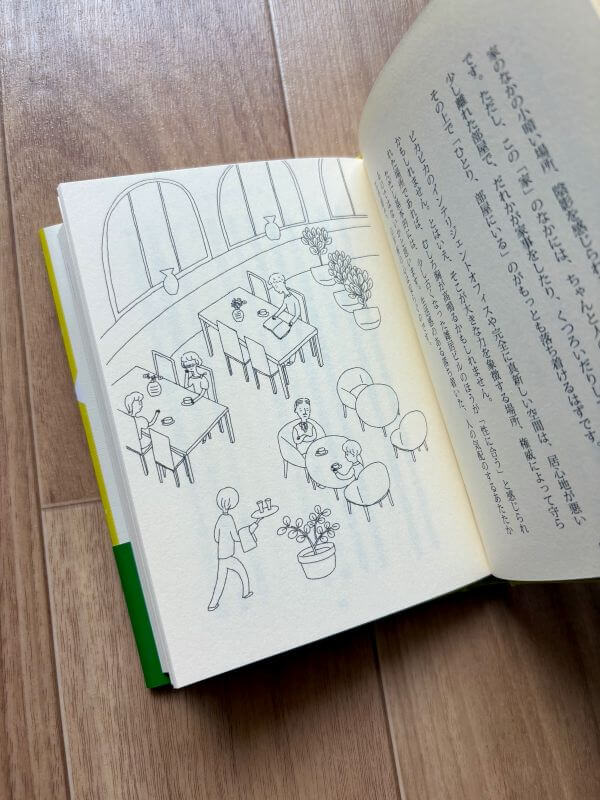 家のなかの小暗い場所、陰影を感じられ
です。ただし、この「家」のなかには、ちゃんと人の
少し離れた部屋で、だれかが家事をしたり、くつろいだりし
その上で「ひとり、部屋にいる」のがもっとも落ち着けるはずです。
ピカピカのインテリジェントオフィスや完全に真新しい空間は、居心地が悪い
かもしれません。とはいえ、そこが大きな力を象徴する場所、権威によって守ら
れた場所であれば、むしろ胸が高鳴るかもしれません。
基本的には、少し古くなった雑居ビルのほうが「性に合う」と感じられ
生活感のある落ち着いた、人の気配のするあたたか